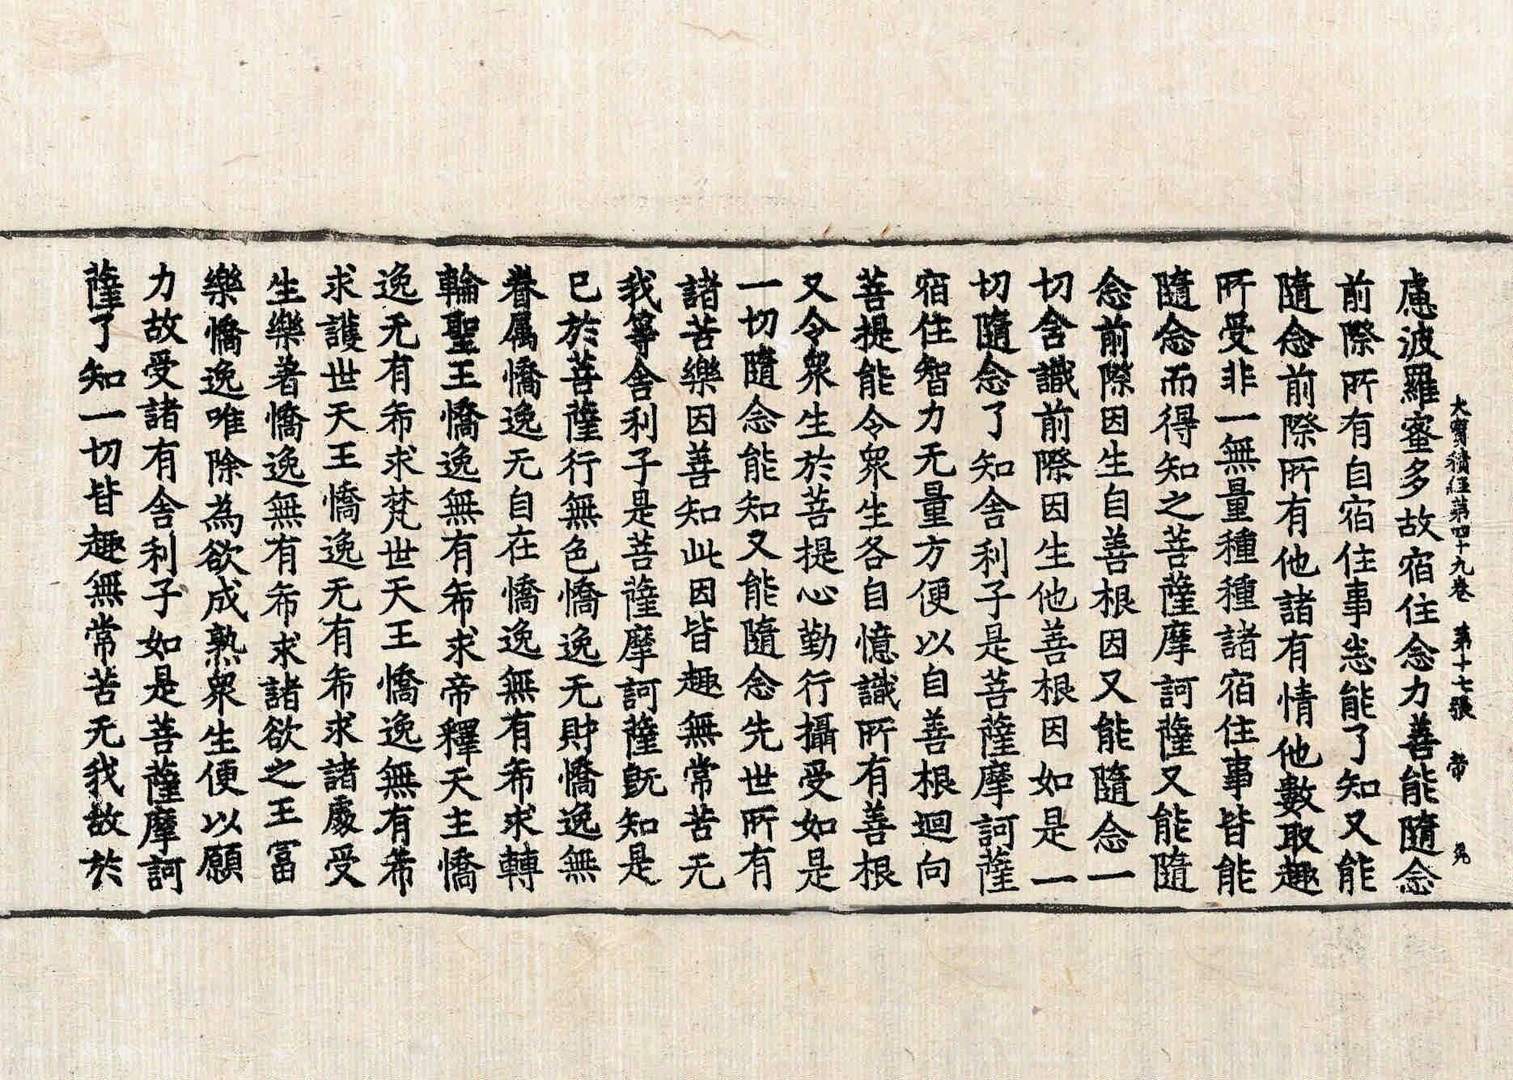 大寳積經第四十九卷 第十七張 帝
慮波羅蜜多故宿住念力善能隨念
前際所有自宿住事悉能了知又能
隨念前際所有他諸有情他數取趣
所受非一無量種種諸宿住事皆能
隨念而得知之菩薩摩訶薩又能隨
念前際因生自善根因又能隨念一
切含識前際因生他善根因如是一
切隨念了知舍利子是菩薩摩訶薩
宿住智力无量方便以自善根迴向
菩提能令衆生各自憶識所有善根
又令衆生於菩提心勤行攝受如是
一切隨念能知又能隨念先世所有
諸苦樂因善知此因皆趣無常苦无
我等舍利子是菩薩摩訶薩旣知是
已於菩薩行無色憍逸无財憍逸無
眷属憍逸无自在憍逸無有希求轉
輪聖王憍逸無有希求帝釋天主憍
逸无有希求梵世天王憍逸無有希
求護世天王憍逸无有希求諸處受
生樂著憍逸無有希求諸欲之王冨
樂憍逸唯除為欲成熟衆生便以願
力故受諸有舍利子如是菩薩摩訶
薩了知一切皆趣無常苦无我故於